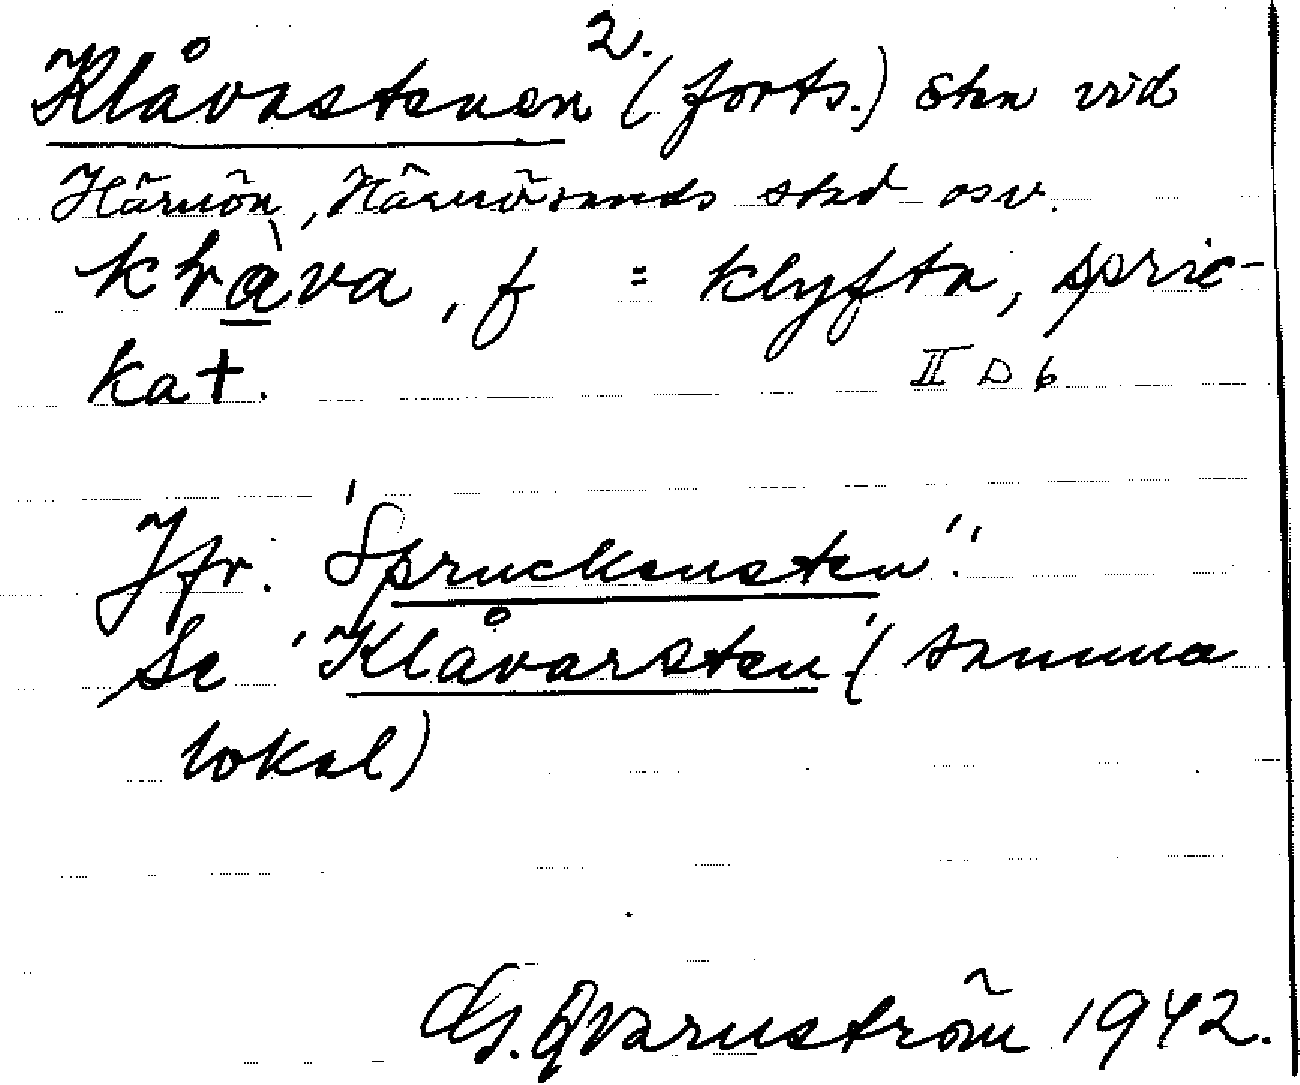 2.
Klåvastenen (forts.) Sten vid
Härnön, Härnösands stad osv.
klàva, f = klyfta, spric-
ka t.
II D 6
Jfr. "Spruckensten".
Se "Klåvarsten" (samma
lokal)
G. Qvarnström 1942.